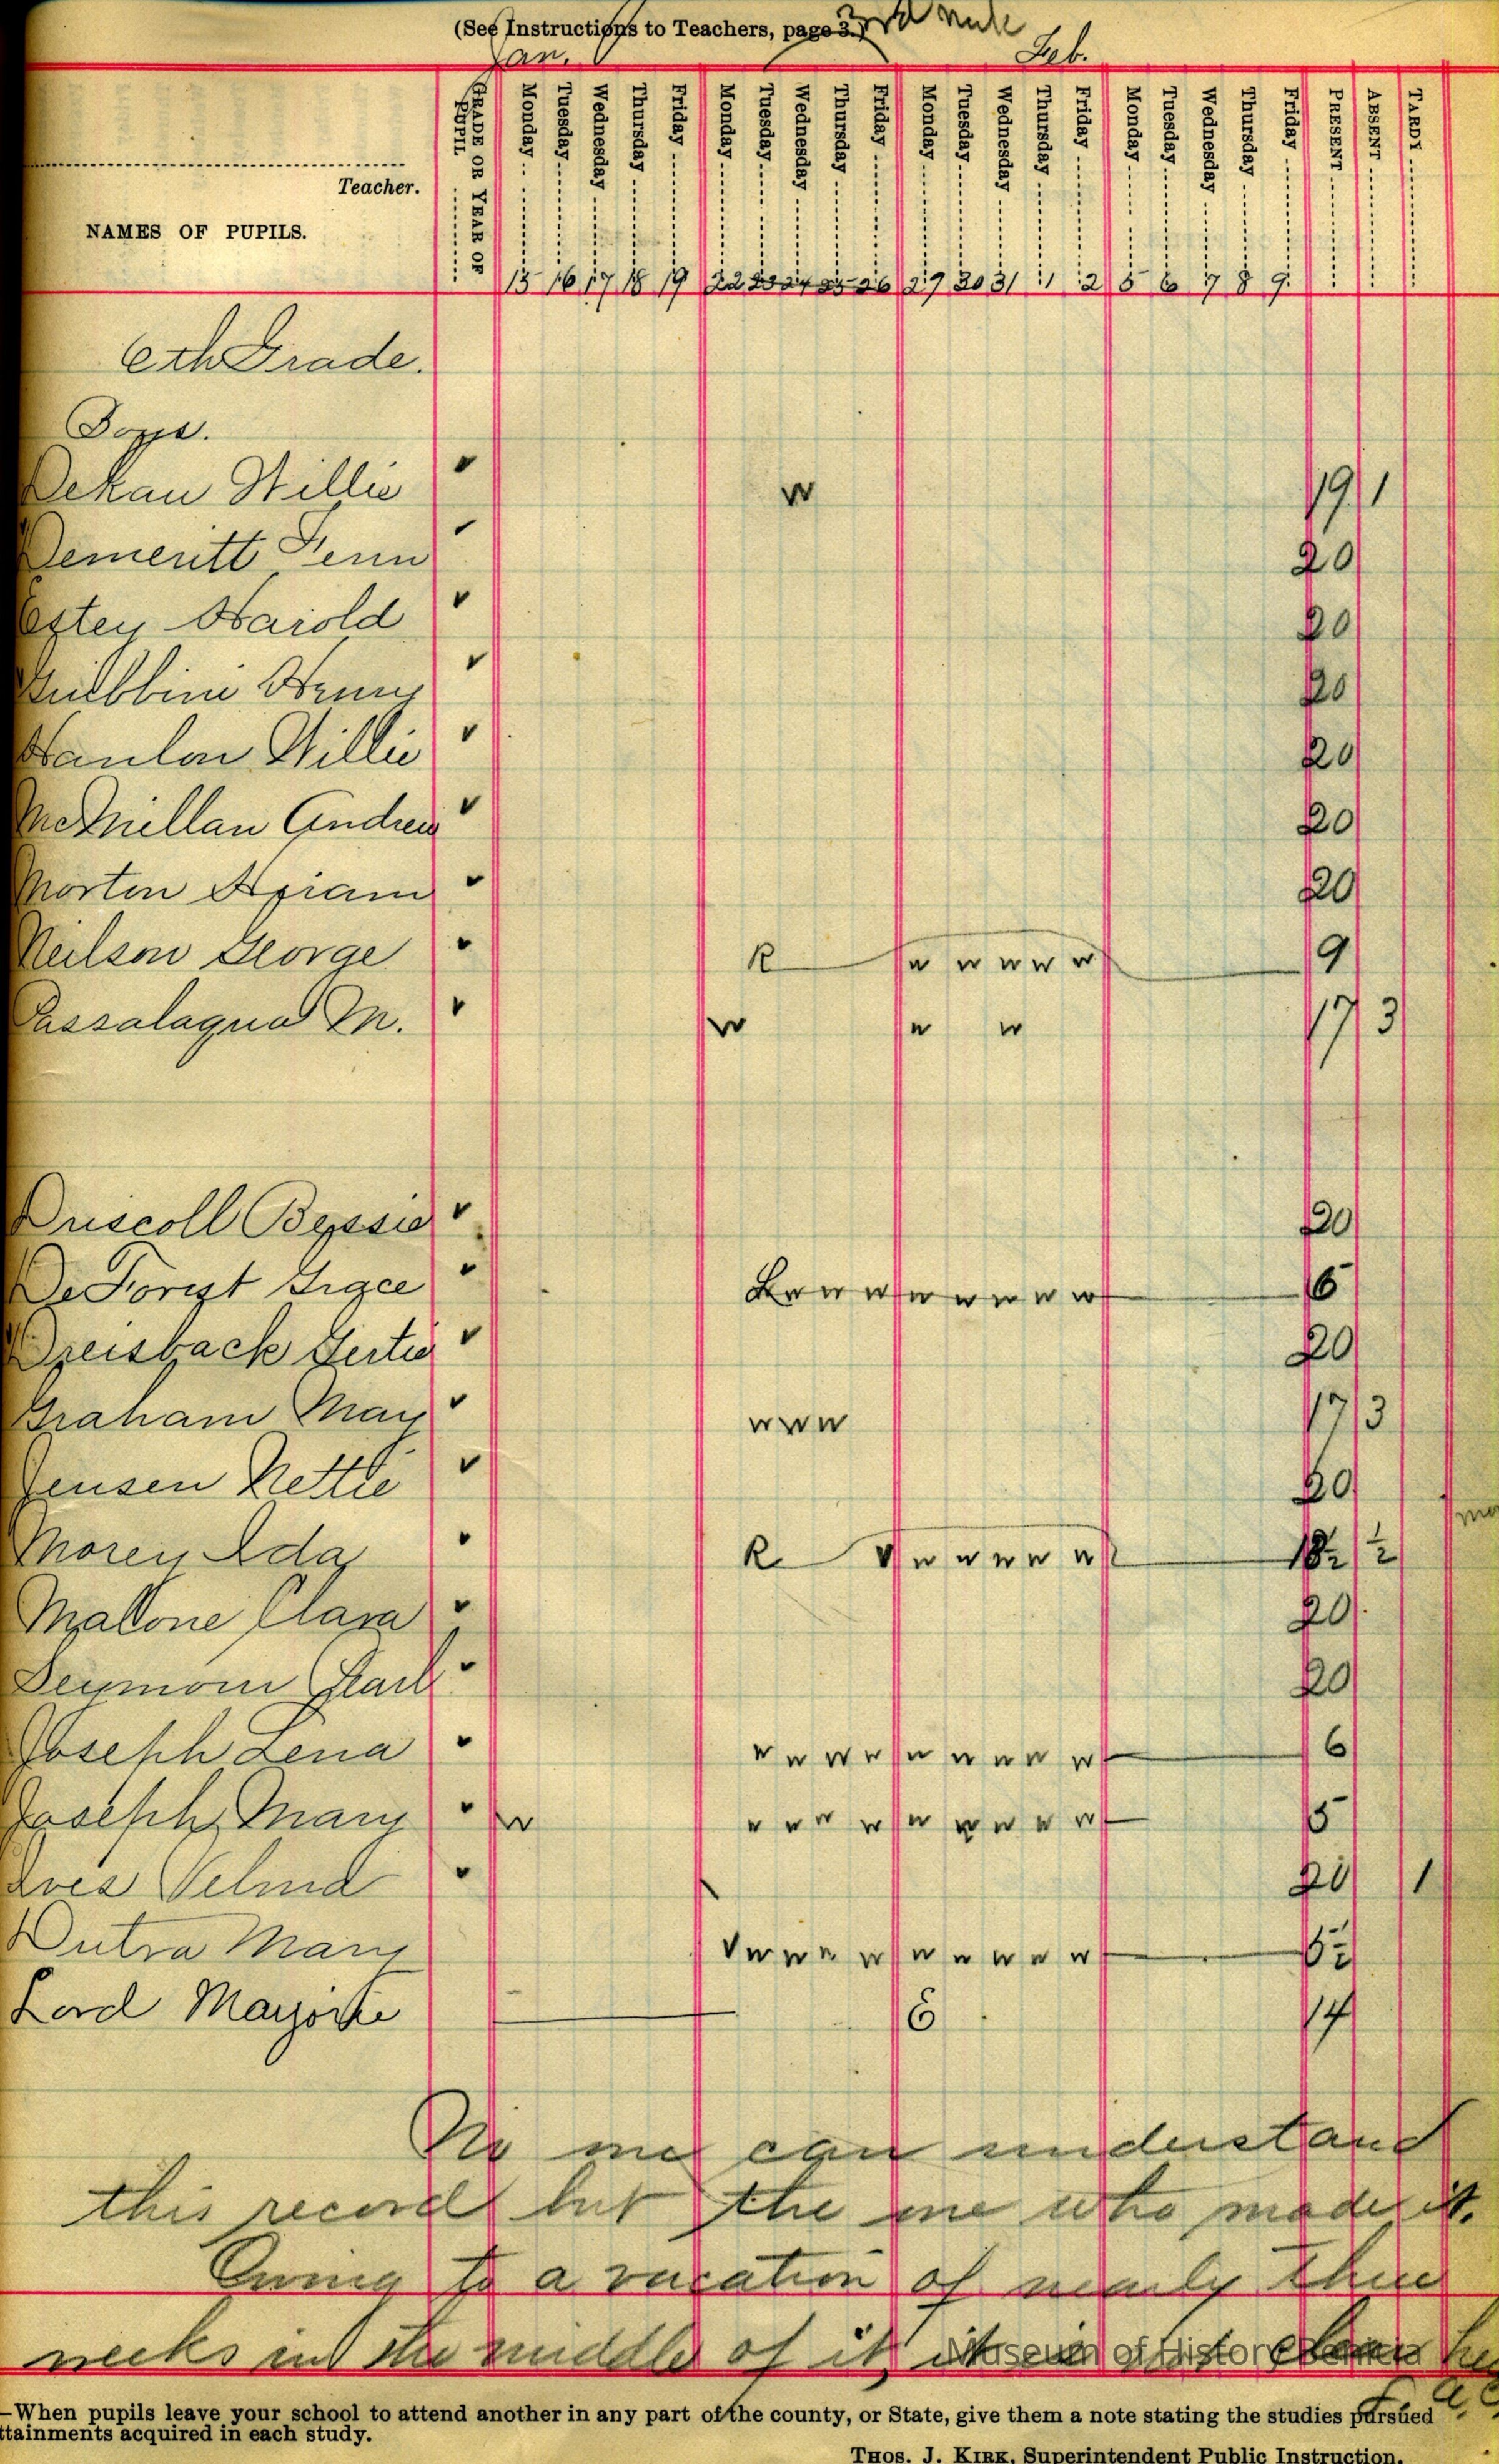 (See Instructions to Teachers, page 3.) 3rd
Jan. Feb.
GRADE OR YEAR OF PUPIL Monday Tuesday Wednesday Thursday Friday Monday Tuesday Wednesday Thursday Friday Monday Tuesday Wednesday Thursday Friday Monday Tuesday Wednesday Thursday Friday PRESENT ABSENT TARDY
Teacher.
NAMES OF PUPILS.
15 16 17 18 19 22 23 24 25 26 29 30 31 1 2 5 6 7 8 9
6th Grade.
Boys.
Dekau Willie w 19 1
Demeritt Fenn 20
Estey Harold 20
Henry 20
Hanlon Willie 20
McMillan Andrew 20
Morton Hiram 20
Neilson George R w w w w w 9
Passalaqua M. w w w 17 3
Driscoll Bessie 20
De Forest Grace w w w w w w w w 6
Dreisback Gertie 20
Graham May w w w 17 3
Jensen Nettie 20
Morey Ida R w w w w w 18½ ½
Malone Clara 20
Seymour Pearl 20
Joseph Lena w w w w w w w w w 6
Joseph Mary w w w w w w w w w w 5
Ives Velma 20 1
Dutra Mary v w w w w w w w w w 5½
Lord Marjorie 6 14
No one can understand
this record but the one who made it.
Owing to a vacation of nearly three
weeks in the middle of it, it is not clear
Museum of History Benicia
—When pupils leave your school to attend another in any part of the county, or State, give them a note stating the studies pursued
ttainments acquired in each study.
THOS. J. KIRK, Superintendent Public Instruction.